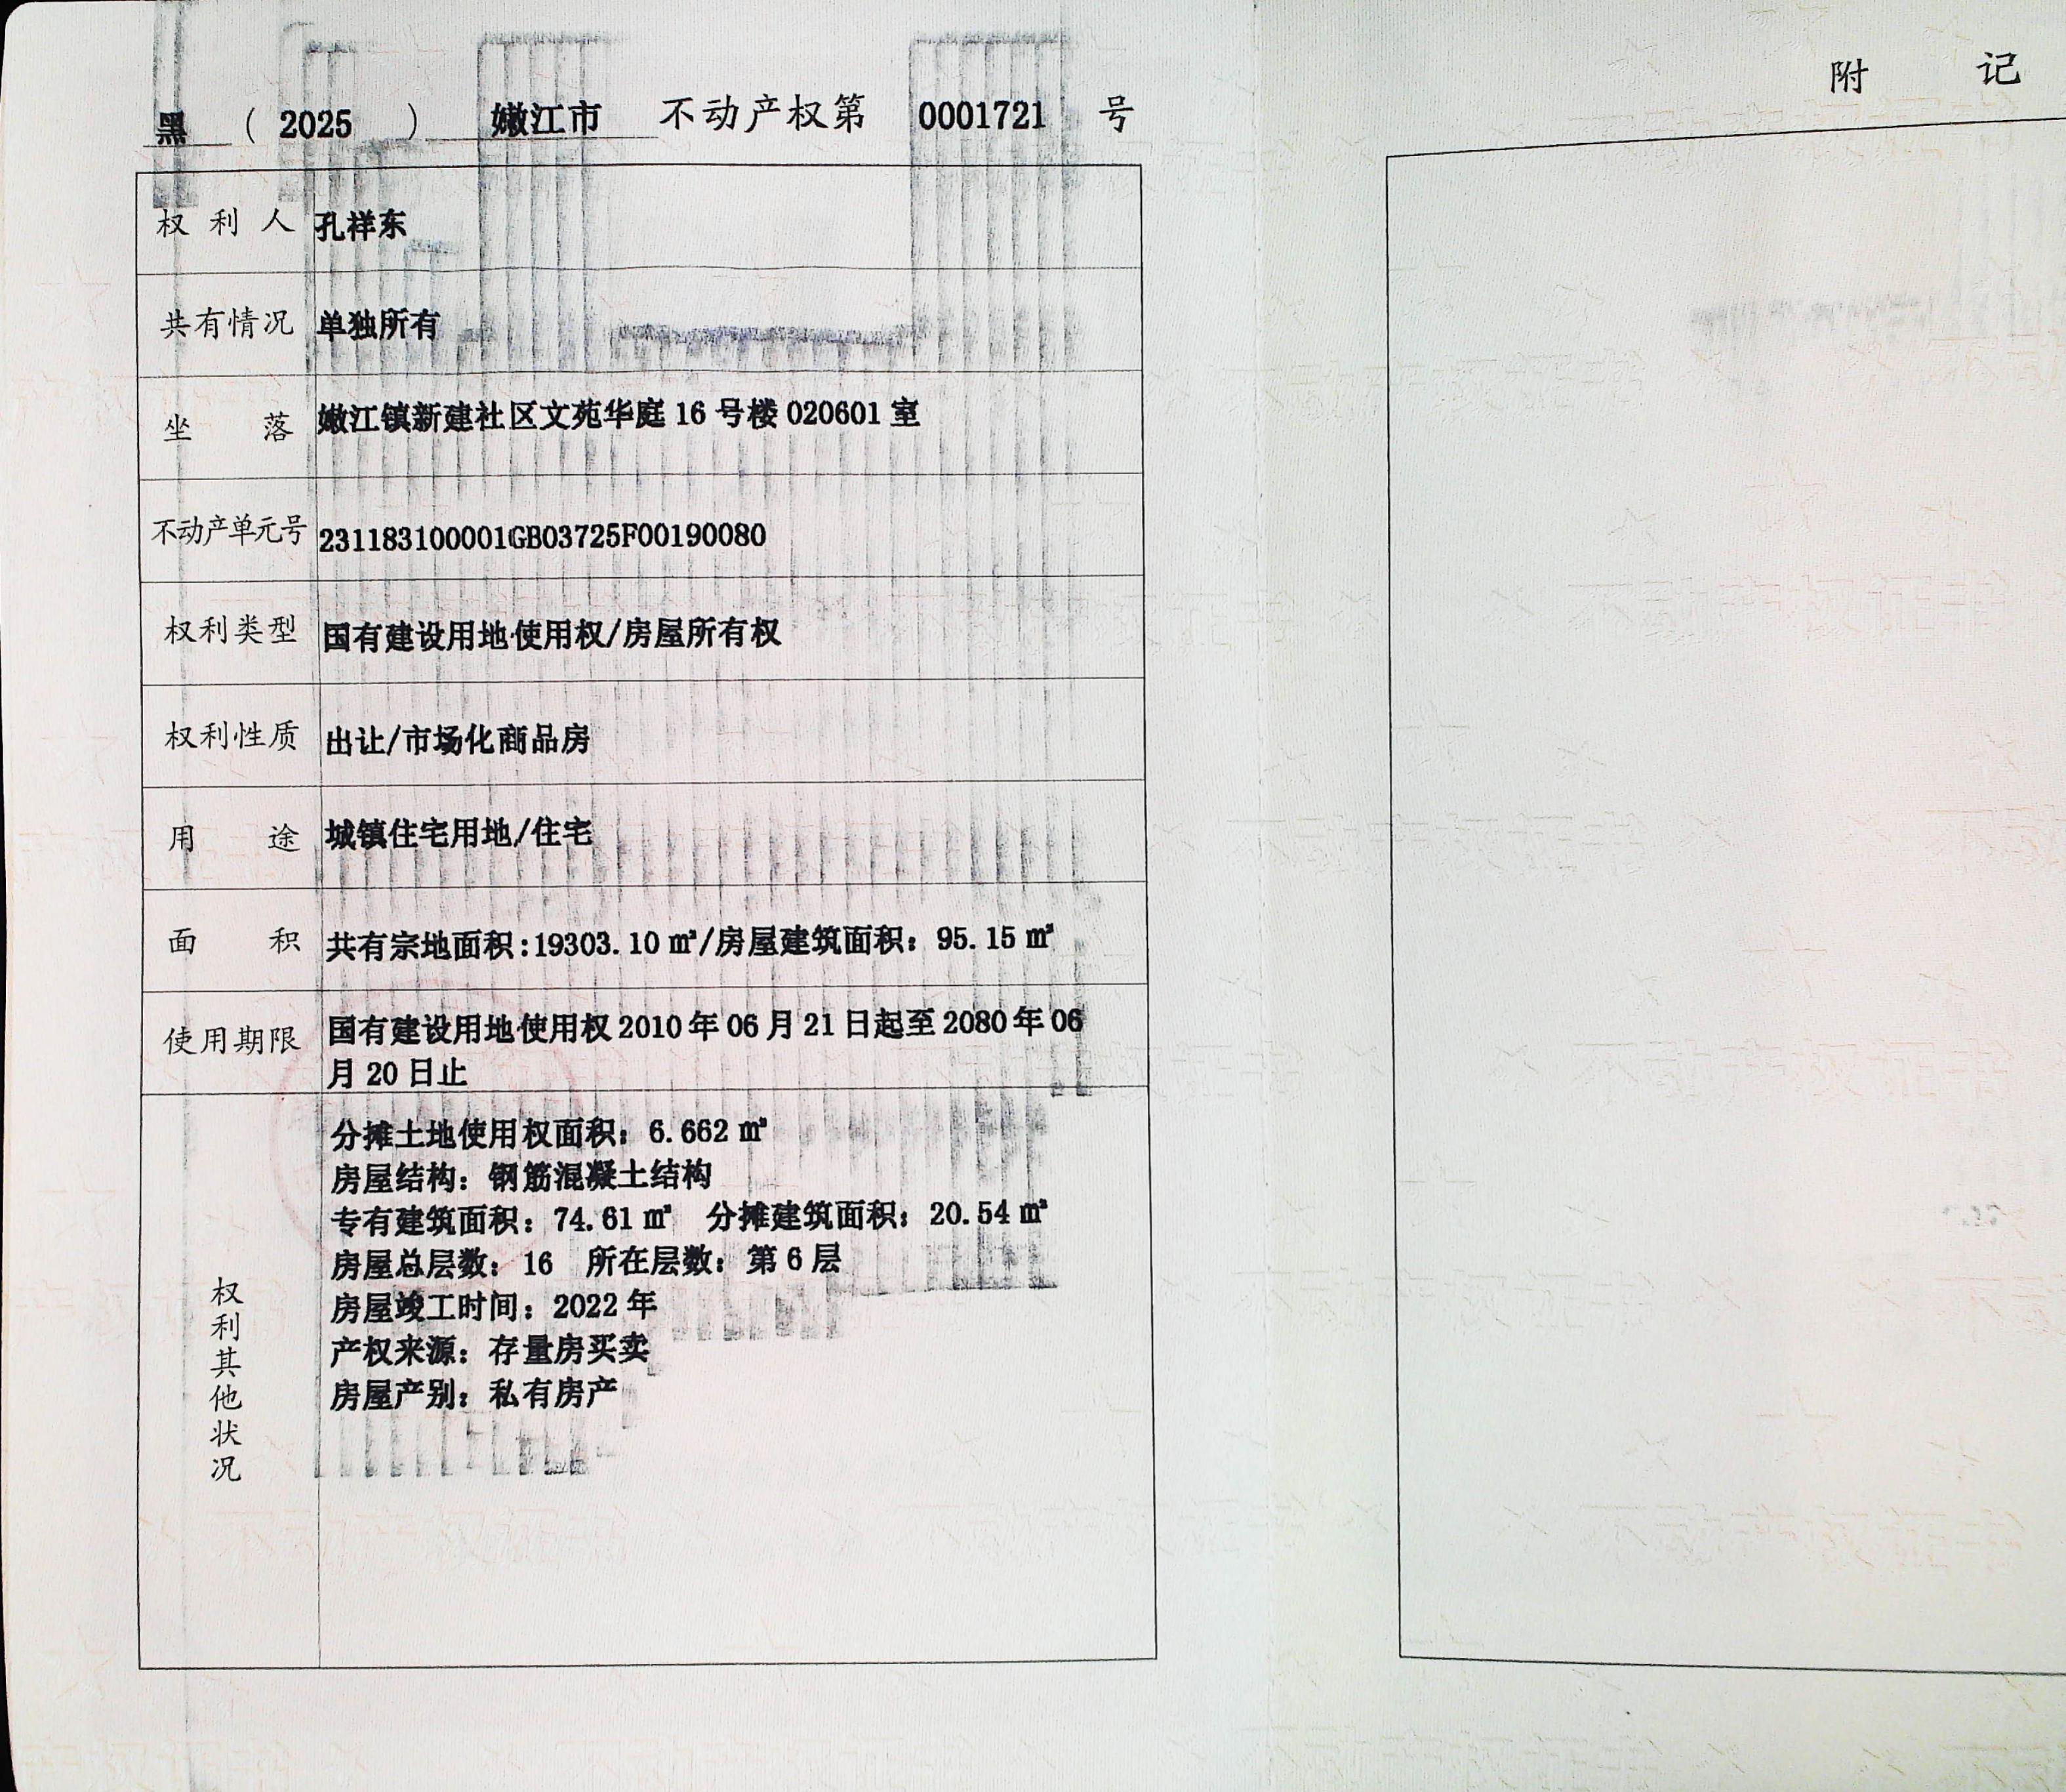 黑 （ 2025 ） 嫩江市 不动产权第 0001721 号
权利人 孔祥东
共有情况 单独所有
坐落 嫩江镇新建社区文苑华庭 16 号楼 020601 室
不动产单元号 231183100001GB03725F00190080
权利类型 国有建设用地使用权/房屋所有权
权利性质 出让/市场化商品房
用途 城镇住宅用地/住宅
面积 共有宗地面积:19303.10 ㎡/房屋建筑面积：95.15 ㎡
使用期限 国有建设用地使用权 2010 年 06 月 21 日起至 2080 年 06
月 20 日止
权利其他状况
分摊土地使用权面积：6.662 ㎡
房屋结构：钢筋混凝土结构
专有建筑面积：74.61 ㎡ 分摊建筑面积：20.54 ㎡
房屋总层数：16 所在层数：第 6 层
房屋竣工时间：2022 年
产权来源：存量房买卖
房屋产别：私有房产
附 记